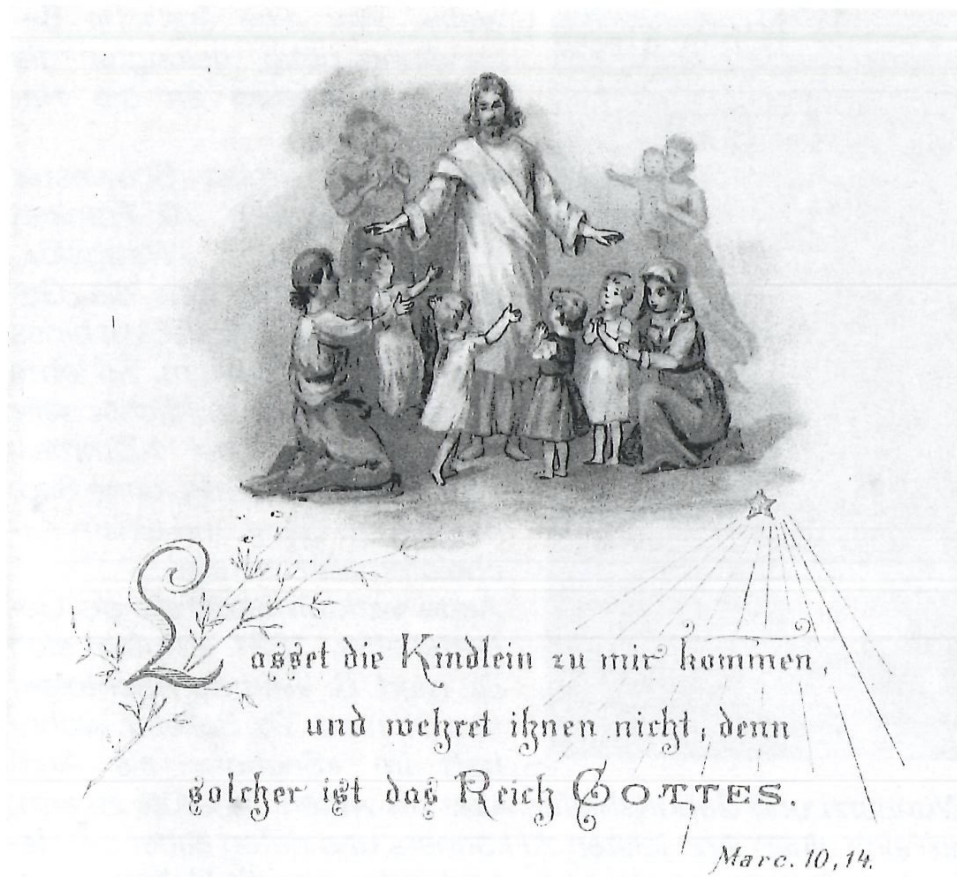 Lasset die Kindlein zu mir kommen,
und wehret ihnen nicht, denn
solcher ist das Reich GOTTES.
Marc. 10,14.